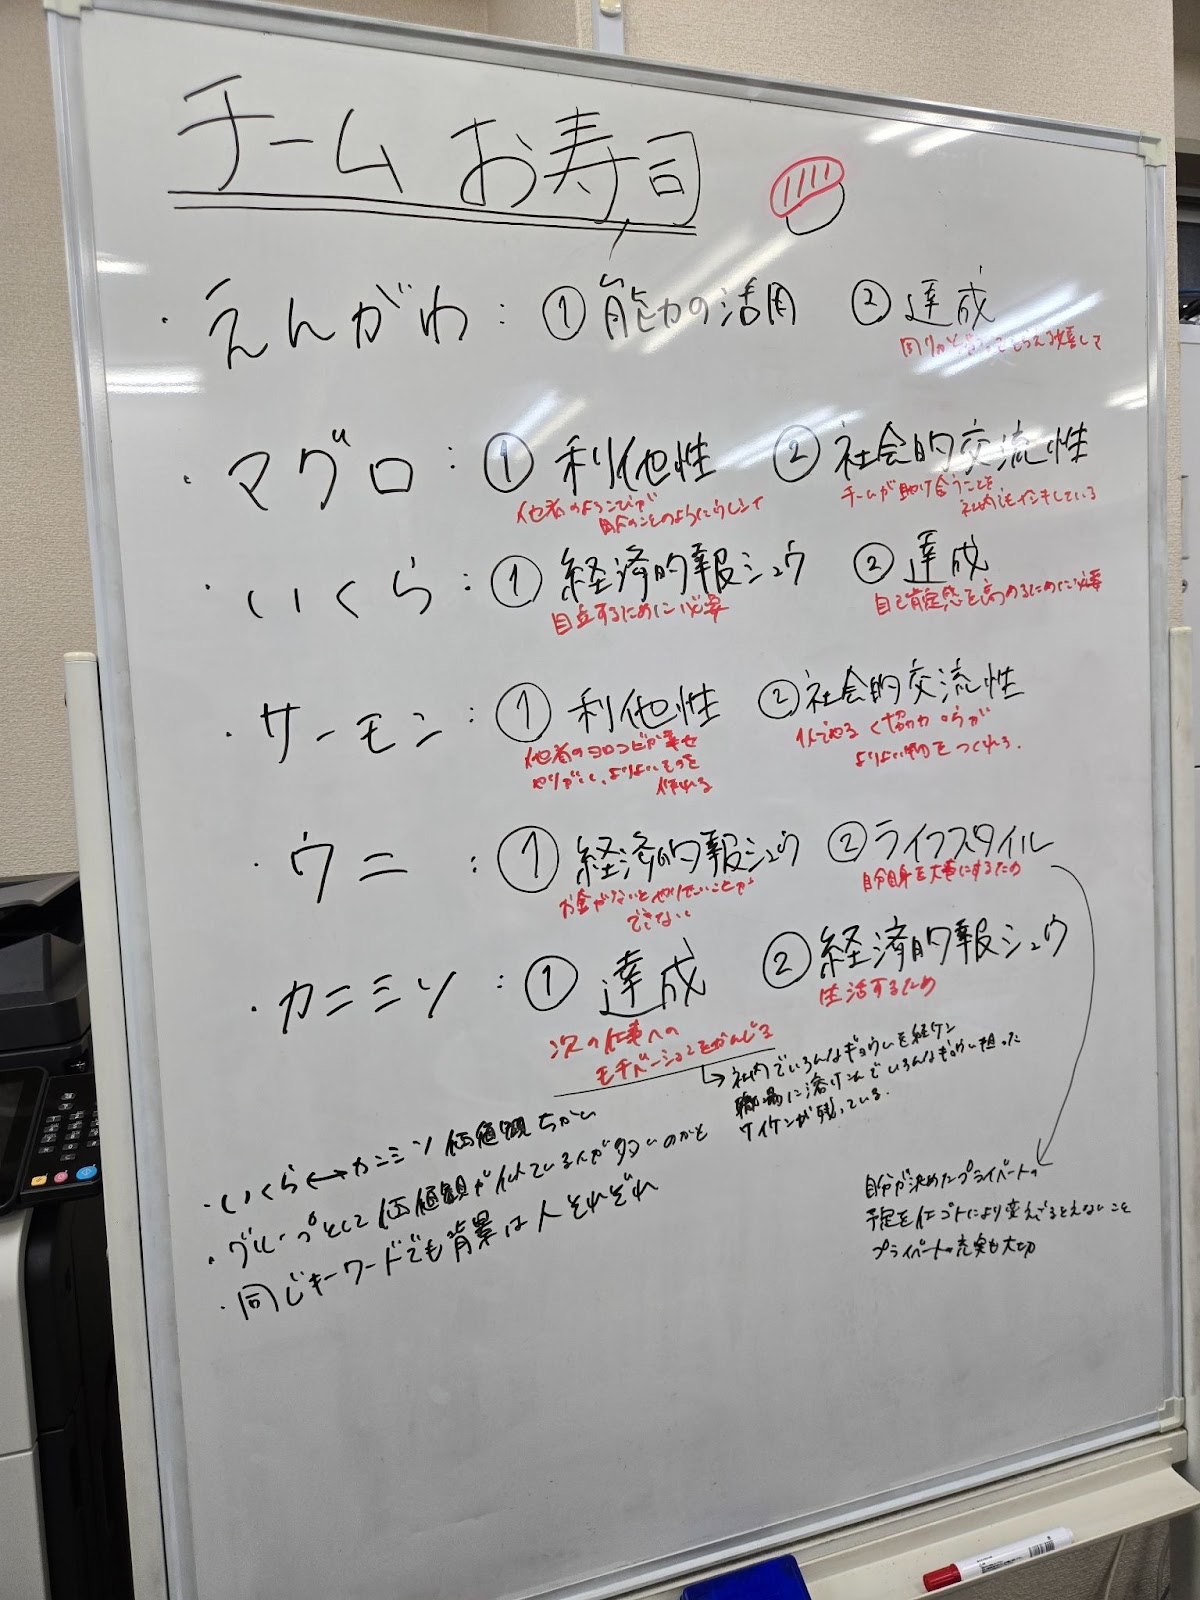 チーム お寿司
・えんがわ : ① 能力の活用 ② 達成
・マグロ : ① 利他性 ② 社会的交流性
他者のよろこびが
自分のことのようにうれしい
チームが助け合うことを
・いくら : ① 経済的報シュウ ② 達成
自立するために必要
自己肯定感を高めるために必要
・サーモン : ① 利他性 ② 社会的交流性
他者のヨロコビが幸せ
やりがい、よりよいものを
作れる
協力 方が
よりよい物をつくれる.
・ウニ : ① 経済的報シュウ ② ライフスタイル
お金がないとやりたいことが
できない
自分自身を大事にするため
・カニミソ : ① 達成 ② 経済的報シュウ
次の仕事への
モチベーションをかんじる
生活するため
→ 社内でいろんなギョウムを経ケン
職場に溶けこんでいろんな 担った
ケイケンが残っている.
・いくら↔カニミソ 価値観ちがい
・グループとして価値観が似ている人が多いのかと
・同じキーワードでも背景は人それぞれ
自分が決めたプライベートの
予定を仕ゴトにより変え こと
プライベートの充実も大切